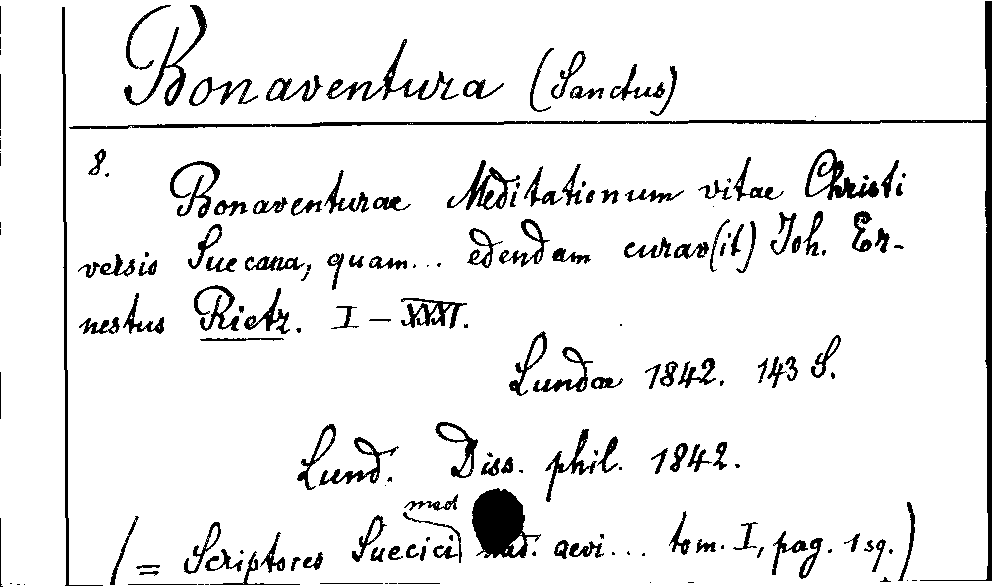 Bonaventura (Sanctus)
8.
Bonaventurae Meditationum vitae Christi
versio Suecana, quam... edendam curav(it) Joh. Er-
nestus Rietz. I – XXXI.
Lundae 1842. 143 S.
Lund. Diss. phil. 1842.
med
(= Scriptores Suecici aevi... tom. I, pag. 1 sq.)